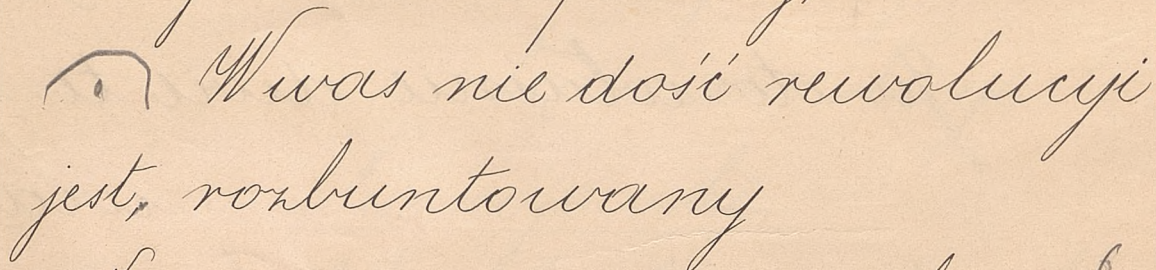 W was nie dość rewolucyji
jest, rozbuntowany